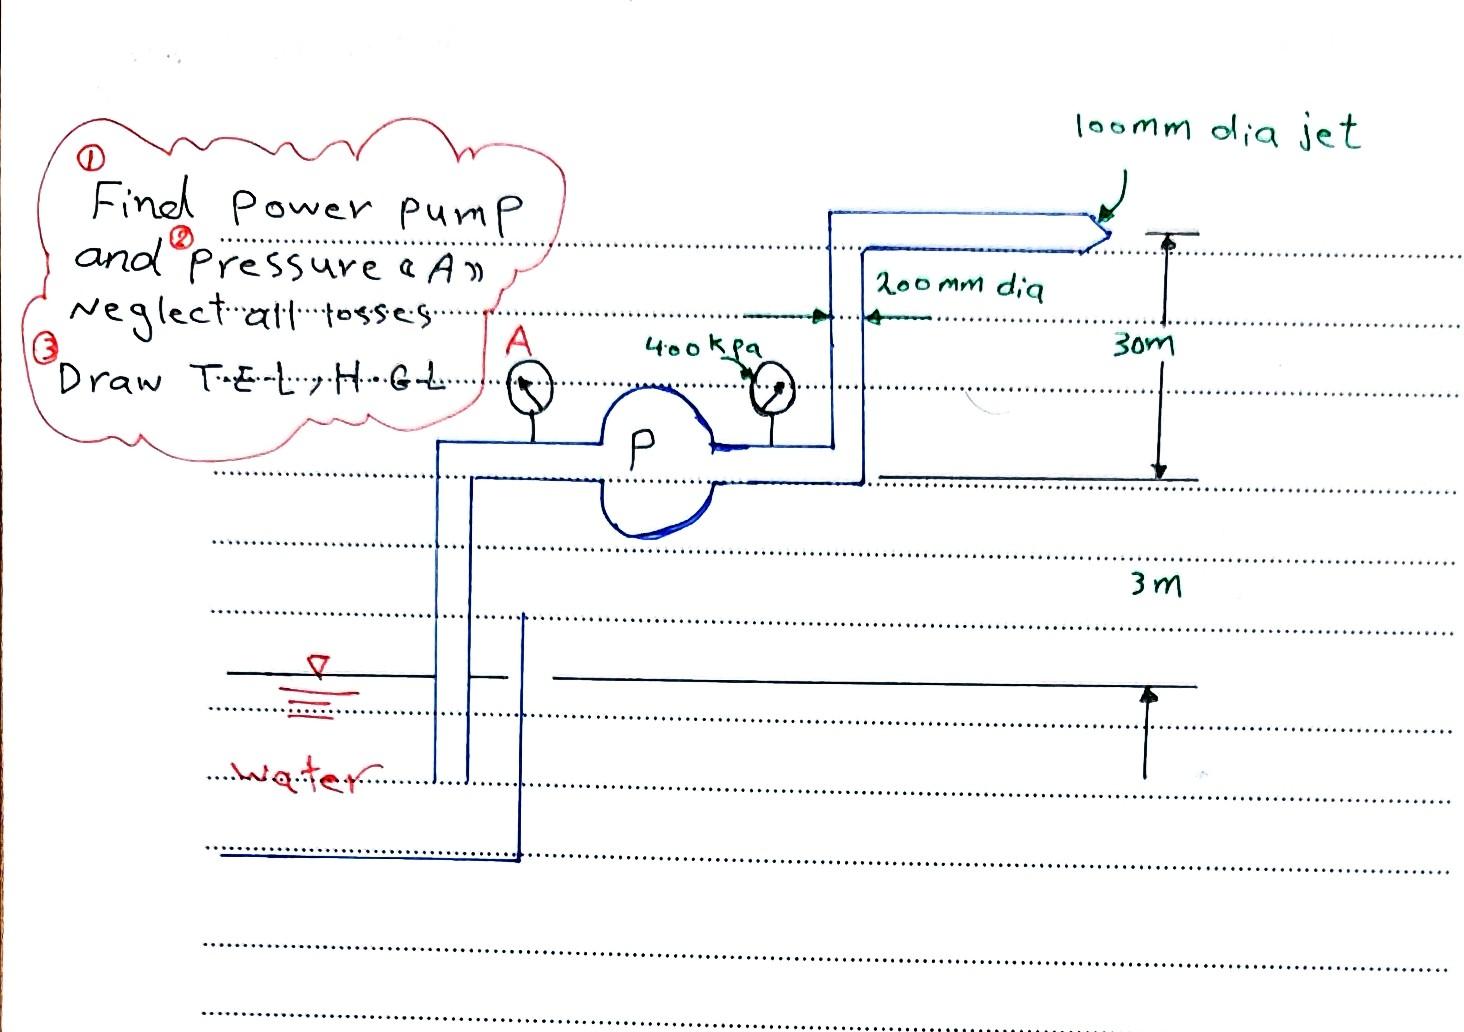 ①
Find Power pump
and ② Pressure «A»
Neglect all losses
③
Draw T.E.L, H.G.L
100mm dia jet
200mm dia
A
400kpa
30m
P
3m
water